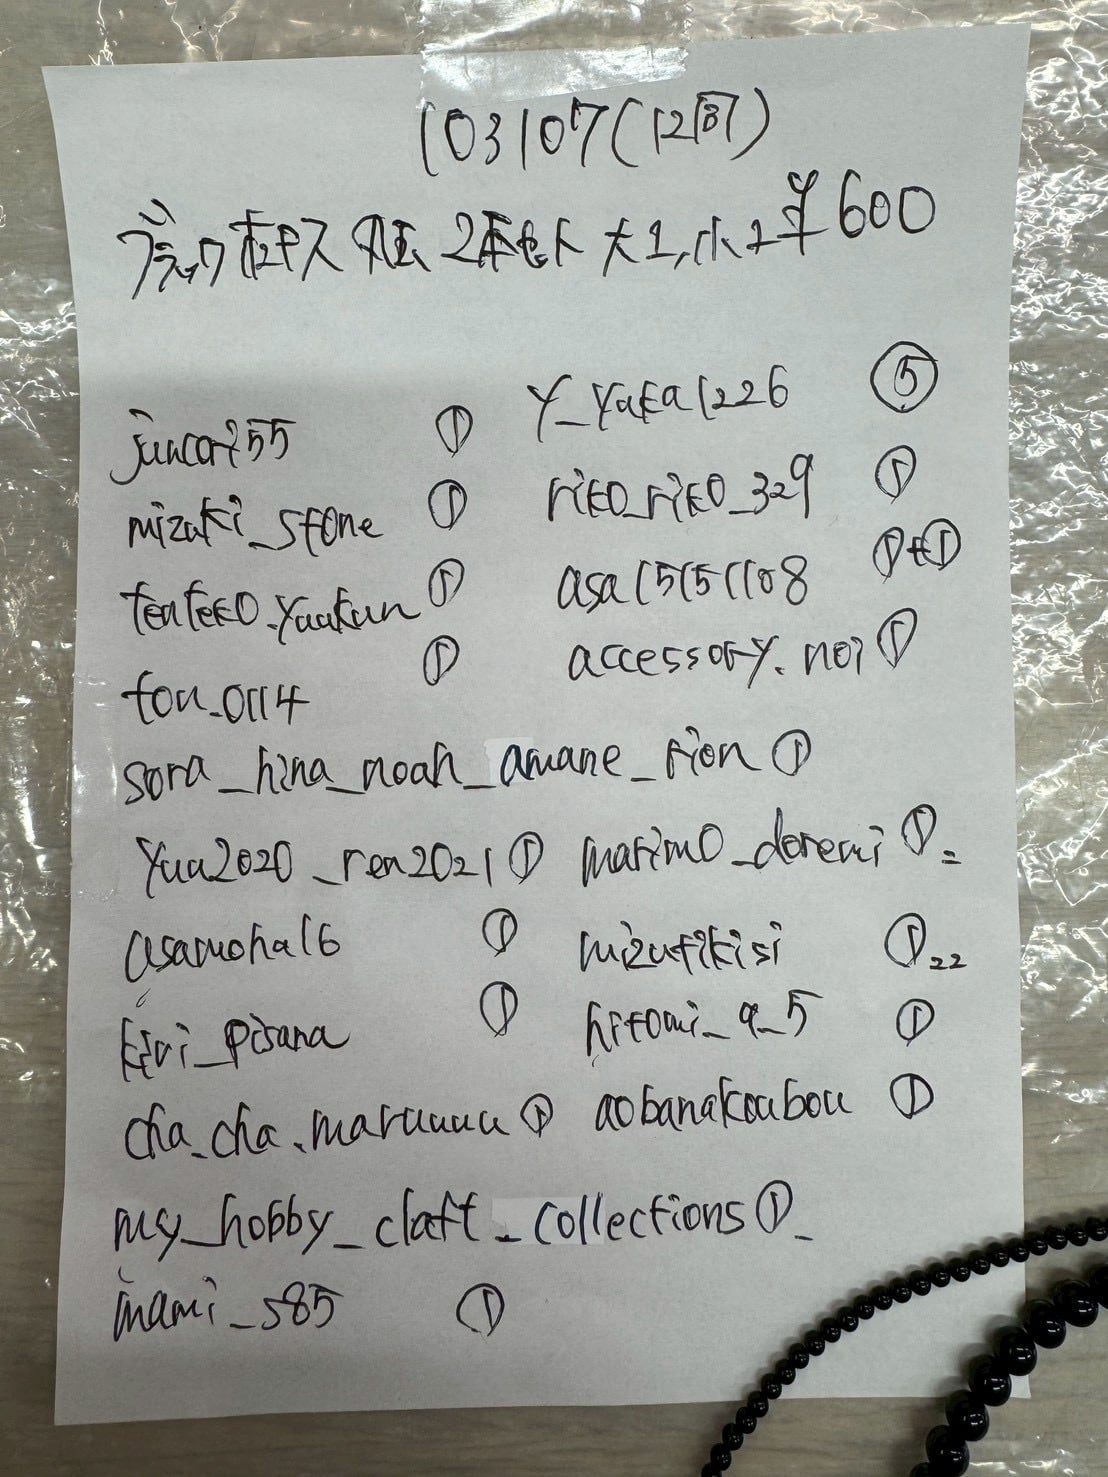 103107(12間)
ブラック オニキス 丸玉 2本セット 大1,小1 ¥600
juncori55 ①
y_yuka1226 ⑤
mizuki_stone ①
riko_riko_329 ①
tenteko.yuukun ①
asa15151108 ①+①
tou_0114 ①
accessory.noi ①
sora_hina_noah_amane_rion ①
yuu2020_ren2021 ①
marimo_doremi ①=
asamoha16 ①
mizutikisi ①22
kiri_pisana ①
hitomi_9_5 ①
cha_cha.maruuuu ①
aobanakoubou ①
my_hobby_claft_collections ①_
mami_s85 ①